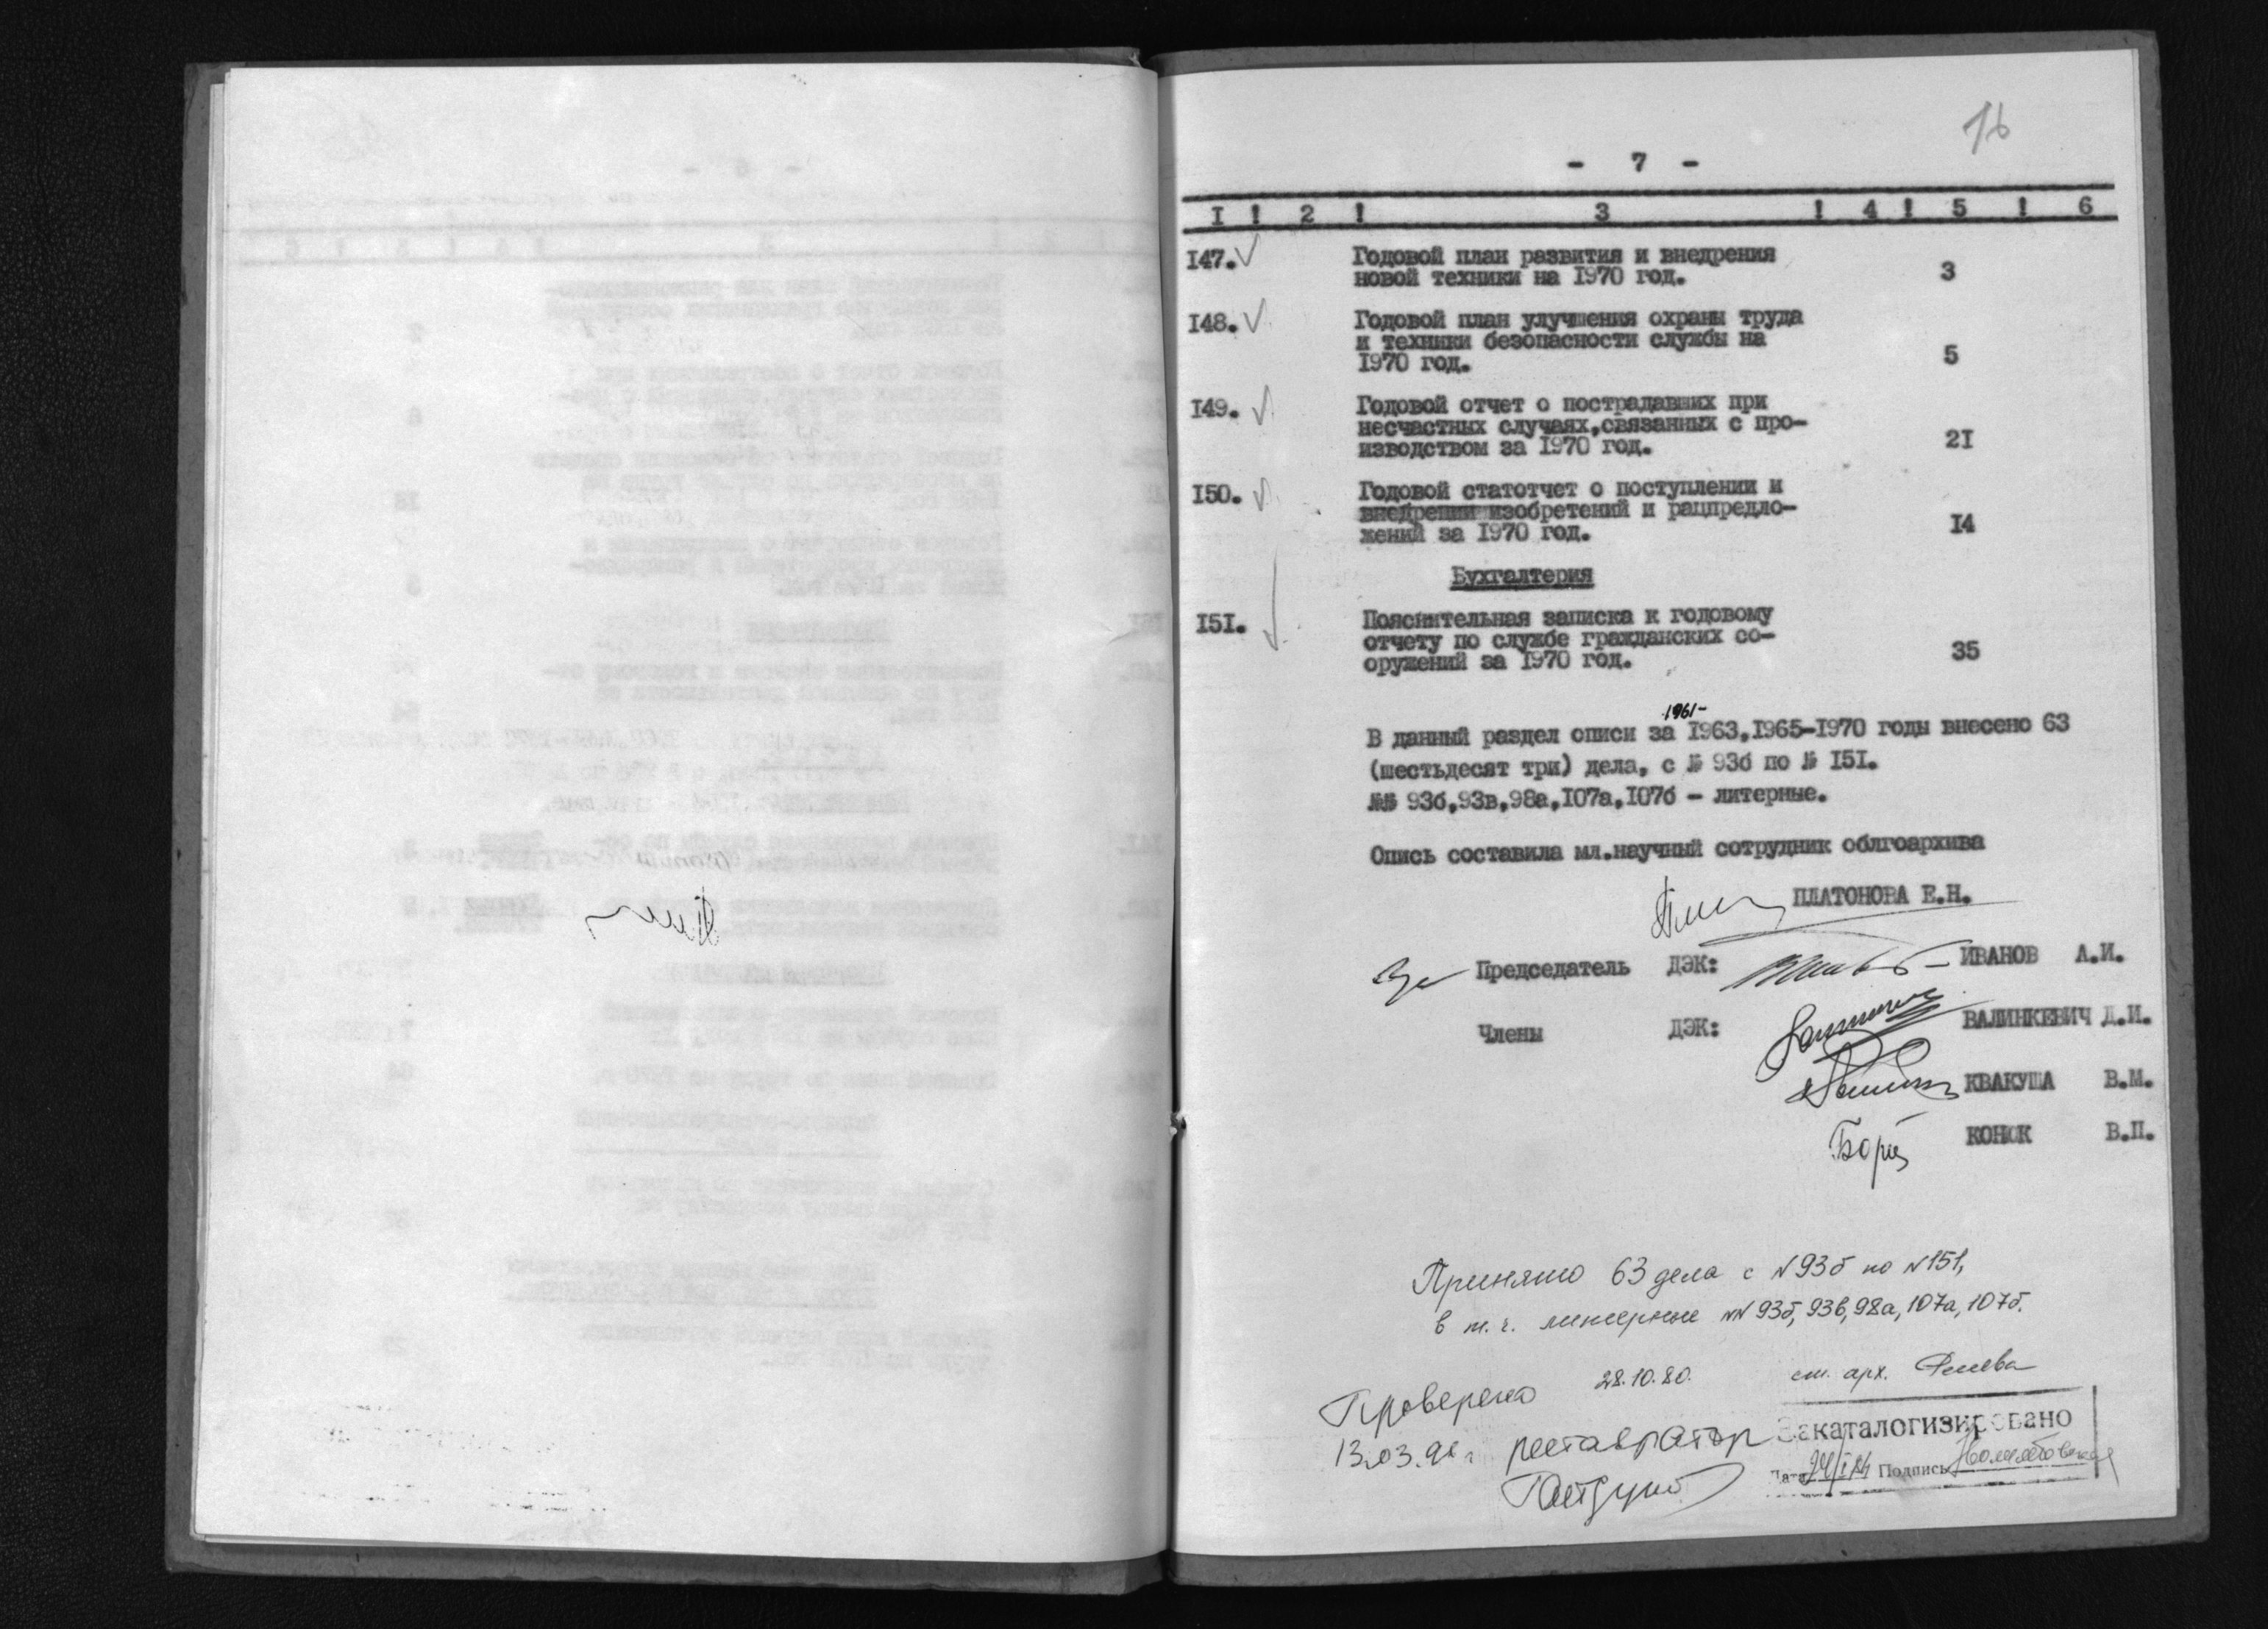 16
- 7 -
I ! 2 ! 3 ! 4 ! 5 ! 6
147. Годовой план развития и внедрения
новой техники на 1970 год. 3
148. Годовой план улучшения охраны труда
и техники безопасности службы на
1970 год. 5
149. Годовой отчет о пострадавших при
несчастных случаях,связанных с про-
изводством за 1970 год. 21
150. Годовой статотчет о поступлении и
внедрении изобретений и рацпредло-
жений за 1970 год. 14
Бухгалтерия
151. Пояснительная записка к годовому
отчету по службе гражданских со-
оружений за 1970 год. 35
1961-
В данный раздел описи за 1963,1965-1970 годы внесено 63
(шестьдесят три) дела, с № 93б по № 151.
№№ 93б,93в,98а,107а,107б - литерные.
Опись составила мл.научный сотрудник облгоархива
ПЛАТОНОВА Е.Н.
Председатель ДЭК: ИВАНОВ А.И.
Члены ДЭК: ВАЛИНКЕВИЧ Д.И.
КВАКУША В.М.
КОНЮК В.П.
Принято 63 дела с N93б по N151,
в т.ч. литерные NN 93б, 93в, 98а, 107а, 107б.
28.10.80. ст. арх.
Проверено
13.03.9 г реставратор
Закаталогизировано
Дата Подпись